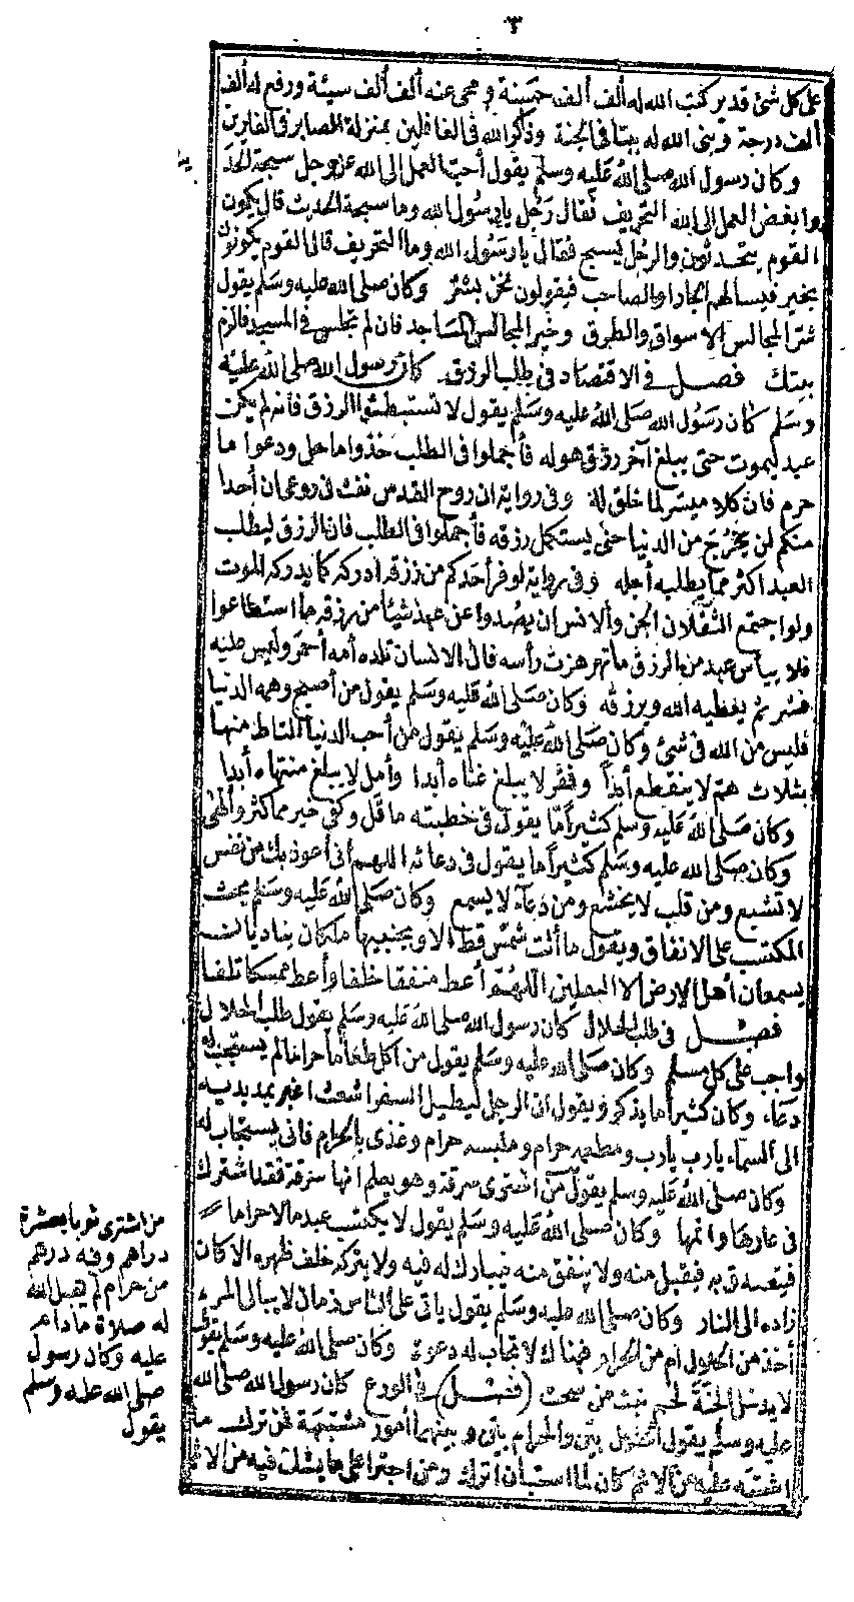 ٣
على كل شئ قدير كتب الله له ألف ألف حسنة ومحى عنه ألف ألف سيئة ورفع له ألف
ألف درجة وبنى الله له بيتا فى الجنة وذاكر الله فى الغافلين بمنزلة الصابر فى الفارين
وكان رسول الله صلى الله عليه وسلم يقول أحب العمل الى الله عز وجل سبحة الحد
وابغض العمل الى الله التحريف فقال رجل يا رسول الله وما سبحة الحديث قال يكون
القوم يتحدثون والرجل يسبح فقال يا رسول الله وما التحريف قال القوم يكونون
بخير فيسألهم الجار والصاحب فيقولون نحن بشر وكان صلى الله عليه وسلم يقول
شر المجالس الاسواق والطرق وخير المجالس المساجد فان لم تجلس فى المسجد فالزم
بيتك فصل فى الاقتصاد فى طلب الرزق كان رسول الله صلى الله عليه
وسلم كان رسول الله صلى الله عليه وسلم يقول لا تستبطئوا الرزق فانه لم يكن
عبد ليموت حتى يبلغ آخر رزق هو له فأجملوا فى الطلب خذوا ما حل ودعوا ما
حرم فان كلا ميسر لما خلق له وفى رواية ان روح القدس نفث فى روعى ان أحدا
منكم لن يخرج من الدنيا حتى يستكمل رزقه فأجملوا فى الطلب فان الرزق ليطلب
العبد اكثر مما يطلبه أجله وفى رواية لو فر أحدكم من رزقه ادركه كما يدركه الموت
ولو اجتمع الثقلان الجن والانس ان يصدوا عن عبد شيئا من رزقه ما استطاعوا
فلا ييأس عبد من الرزق ما تهزهزت رأسه فان الانسان تلده أمه أحمر وليس عليه
قشر ثم يعطيه الله ويرزقه وكان صلى الله عليه وسلم يقول من أصبح وهمه الدنيا
فليس من الله فى شئ وكان صلى الله عليه وسلم يقول من أحب الدنيا التاط منها
بثلاث هم لا ينقطع أبدا وفقر لا يبلغ غناه أبدا وأمل لا يبلغ منتهاه أبدا
وكان صلى الله عليه وسلم كثيرا ما يقول فى خطبته ما قل وكفى خير مما كثر وألهى
وكان صلى الله عليه وسلم كثيرا ما يقول فى دعائه اللهم انى أعوذ بك من نفس
لا تشبع ومن قلب لا يخشع ومن دعاء لا يسمع وكان صلى الله عليه وسلم يحث
المكتسب على الانفاق ويقول ما أتت شمس قط الا وبجنبيها ملكان يناديان
يسمعان أهل الارض الا الثقلين اللهم أعط منفقا خلفا وأعط ممسكا تلفا
فصل فى طلب الحلال كان رسول الله صلى الله عليه وسلم يقول طلب الحلال
واجب على كل مسلم وكان صلى الله عليه وسلم يقول من اكل طعاما حراما لم يستجب له
دعاء وكان كثيرا ما يذكر ويقول ان الرجل ليطيل السفر اشعث اغبر يمد يديه
الى السماء يارب يارب ومطعمه حرام وملبسه حرام وغذى بالحرام فانى يستجاب له
وكان صلى الله عليه وسلم يقول من اشترى سرقة وهو يعلم انها سرقة فقد اشترك
فى عارها واثمها وكان صلى الله عليه وسلم يقول لا يكتسب عبد مالا حراما
فيتصدق به فيقبل منه ولا ينفق منه فيبارك له فيه ولا يتركه خلف ظهره الا كان
زاده الى النار وكان صلى الله عليه وسلم يقول يأتى على الناس زمان لا يبالى المرء
أخذ من الحلال أم من الحرام فهناك لا تجاب له دعوة وكان صلى الله عليه وسلم يقول
لا يدخل الجنة لحم نبت من سحت (فصل) فى الورع كان رسول الله صلى الله
عليه وسلم يقول الحلال بين والحرام بين وبينهما أمور مشتبهة فمن ترك ما
اشتبه عليه من الاثم كان لما استبان اترك ومن اجترأ على ما يشك فيه من الاثم
من اشترى ثوبا بعشرة
دراهم وفيه درهم
من حرام لم يقبل الله
له صلاة مادام
عليه وكان رسول
صلى الله عليه وسلم
يقول